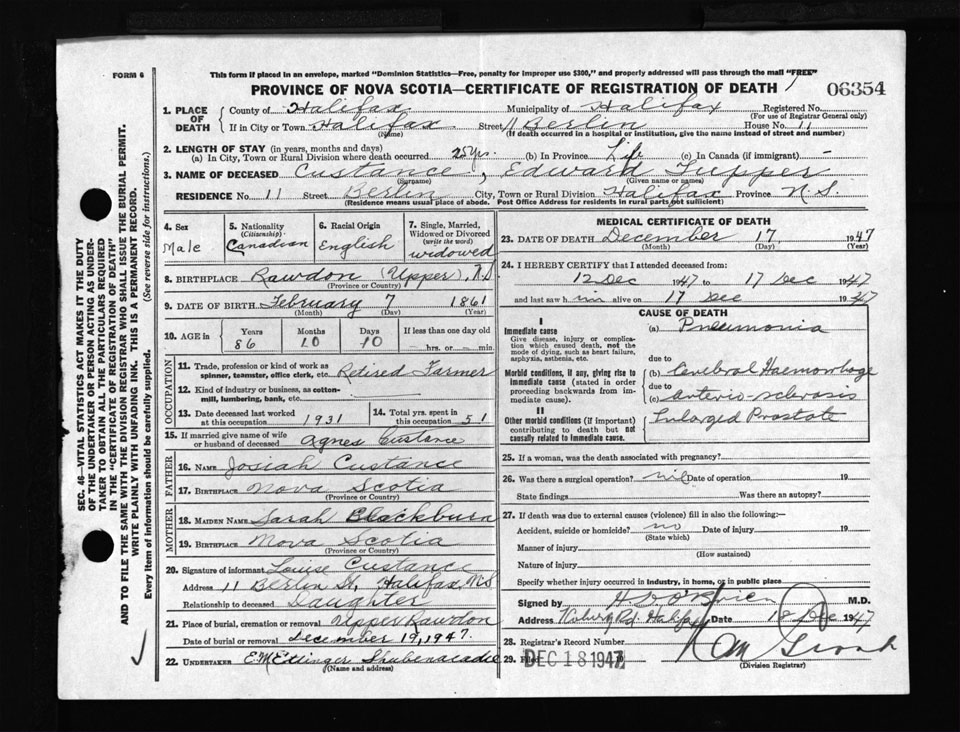 FORM 6
This form if placed in an envelope, marked "Dominion Statistics—Free, penalty for improper use $300," and properly addressed will pass through the mail "FREE"
PROVINCE OF NOVA SCOTIA—CERTIFICATE OF REGISTRATION OF DEATH
06354
1. PLACE OF DEATH
County of Halifax Municipality of Halifax Registered No.
(For use of Registrar General only)
If in City or Town Halifax Street 11 Berlin House No. 11
(Name) (If death occurred in a hospital or institution, give the name instead of street and number)
2. LENGTH OF STAY (in years, months and days)
(a) In City, Town or Rural Division where death occurred 25 yrs. (b) In Province Life (c) In Canada (if immigrant) —
3. NAME OF DECEASED Custance, Edward Tupper
(Surname) (Given name or names)
RESIDENCE NO. 11 Street Berlin City, Town or Rural Division Halifax Province N.S.
(Residence means usual place of abode. Post Office Address for residents in rural parts not sufficient)
4. Sex Male
5. Nationality (Citizenship) Canadian
6. Racial Origin English
7. Single, Married, Widowed or Divorced (write the word) widowed
8. BIRTHPLACE Rawdon (Upper), N.S
(Province or Country)
9. DATE OF BIRTH February 7 1861
(Month) (Day) (Year)
10. AGE in Years Months Days If less than one day old
86 10 10 hrs. or min.
OCCUPATION
11. Trade, profession or kind of work as spinner, teamster, office clerk, etc. Retired Farmer
12. Kind of industry or business, as cotton-mill, lumbering, bank, etc.
13. Date deceased last worked at this occupation 1931
14. Total yrs. spent in 51
15. If married give name of wife or husband of deceased Agnes Custance
FATHER
16. NAME Josiah Custance
17. BIRTHPLACE Nova Scotia
(Province or Country)
MOTHER
18. MAIDEN NAME Sarah Blackburn
19. BIRTHPLACE Nova Scotia
(Province or Country)
20. Signature of informant Louise Custance
Address 11 Berlin St, Halifax N.S
Relationship to deceased Daughter
21. Place of burial, cremation or removal Upper Rawdon
Date of burial or removal December 19, 1947.
22. UNDERTAKER E.M Ettinger Shubenacadie
(Name and address)
MEDICAL CERTIFICATE OF DEATH
23. DATE OF DEATH December 17 1947
(Month) (Day) (Year)
24. I HEREBY CERTIFY that I attended deceased from:
12 Dec 1947 to 17 Dec 1947
and last saw him alive on 17 Dec 1947
CAUSE OF DEATH
I
Immediate cause
Give disease, injury or complication which caused death, not the mode of dying, such as heart failure, asphyxia, asthenia, etc.
(a) Pneumonia
due to
Morbid conditions, if any, giving rise to immediate cause (stated in order proceeding backwards from immediate cause).
(b) Cerebral Haemorrhage
due to
(c) Arterio-sclerosis
II
Other morbid conditions (if important) contributing to death but not causally related to immediate cause.
Enlarged Prostate
25. If a woman, was the death associated with pregnancy?
26. Was there a surgical operation? nil Date of operation 19
State findings Was there an autopsy?
27. If death was due to external causes (violence) fill in also the following:—
Accident, suicide or homicide? no Date of injury 19
(State which)
Manner of injury
(How sustained)
Nature of injury
Specify whether injury occurred in industry, in home, or in public place
Signed by M.D.
Address Coburg Rd. Halifax Date 18 Dec 1947
28. Registrar's Record Number
29. DEC 18 1947
(Division Registrar)
SEC. 46—VITAL STATISTICS ACT MAKES IT THE DUTY
OF THE UNDERTAKER OR PERSON ACTING AS UNDER-
TAKER TO OBTAIN ALL THE PARTICULARS REQUIRED
IN THE "CERTIFICATE OF REGISTRATION OF DEATH"
AND TO FILE THE SAME WITH THE DIVISION REGISTRAR WHO SHALL ISSUE THE BURIAL PERMIT.
WRITE PLAINLY WITH UNFADING INK. THIS IS A PERMANENT RECORD.
Every item of information should be carefully supplied. (See reverse side for instructions.)